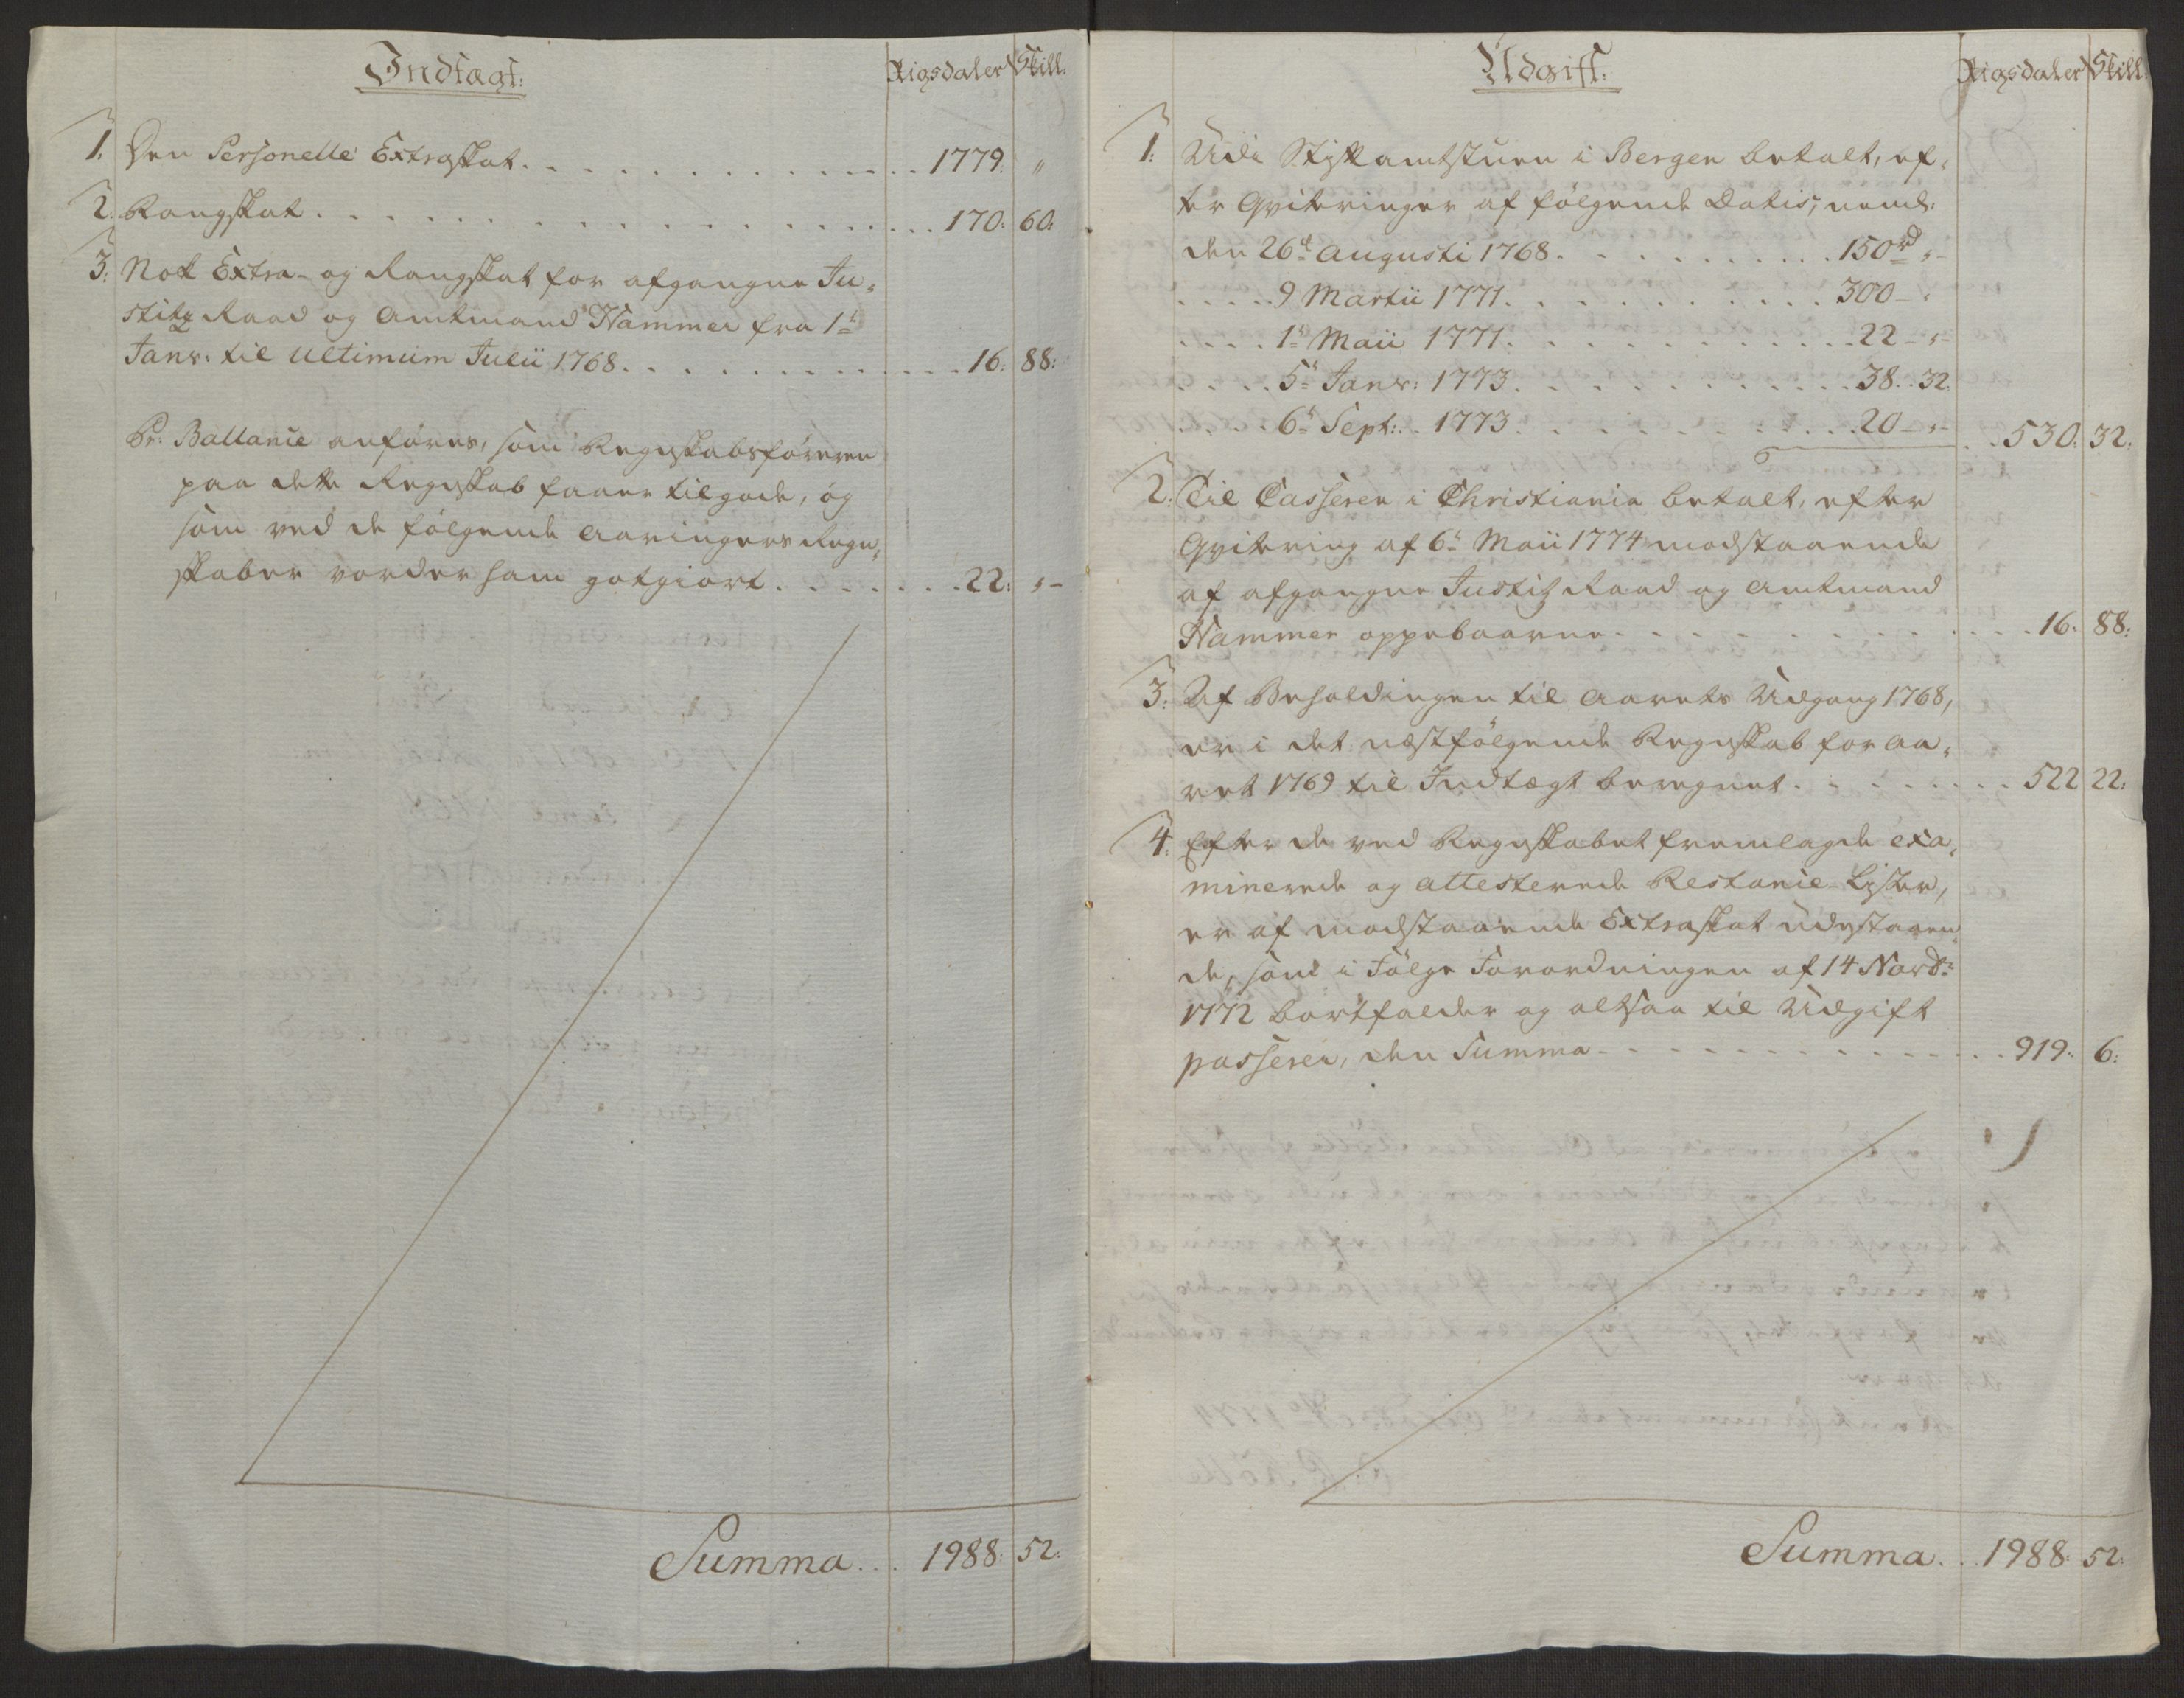 Indtægt:
Rigsdaler Skill:
1. Den Personelle Extraskat. . . . . . 1779. "
2. Rangskat. . . . . . 170: 60:
3: Nok Extra- og Rangskat for afgangne Ju-
stitz Raad og Amtmand Hammer fra 1te
Janv: til ultimum Julii 1768. . . . . . 16: 88:
Pr: Ballance anføres, som Regnskabsføreren
paa dette Regnskab faaer tilgode, og
som ved de følgende Aaringers Regn-
skaber vorder ham gotgiort. . . . . . 22: "-
Summa. . . 1988: 52:
Udgift:
Rigsdaler Skill:
1: Udi Stiftamtstuen i Bergen betalt, ef-
ter Qviteringer af følgende Datis, neml:
den 26de Augusti 1768. . . . . . 150rd "-
. . . . 9 Martii 1771. . . . . . 300- "
. . . . 1te Maii 1771. . . . . . 22- "-
. . . . 5te Janv: 1773. . . . . . 38. 32.
. . . . 6te Sept: 1773. . . . . . 20- "-
. . 530: 32:
2: Til Casseren i Christiania betalt, efter
Qvitering af 6te Maii 1774 modstaaende
af afgangne Justitz Raad og Amtmand
Hammer oppebaarne. . . . . . 16. 88:
3: Af Beholdingen til Aarets Udgang 1768,
er i det næstfølgende Regnskab for Aa-
ret 1769 til Indtægt beregnet. . . . . . 522 22:
4. Efter de ved Regnskabet fremlagde exa-
minerede og attesterede Restance-Lister,
er af modstaaende Extraskat udestaaen-
de, som i Følge Forordningen af 14 Novbr:
1772 bortfalder og altsaa til Udgift
passerer, den Summa. . . . . . 919: 6:
Summa. . . 1988: 52: